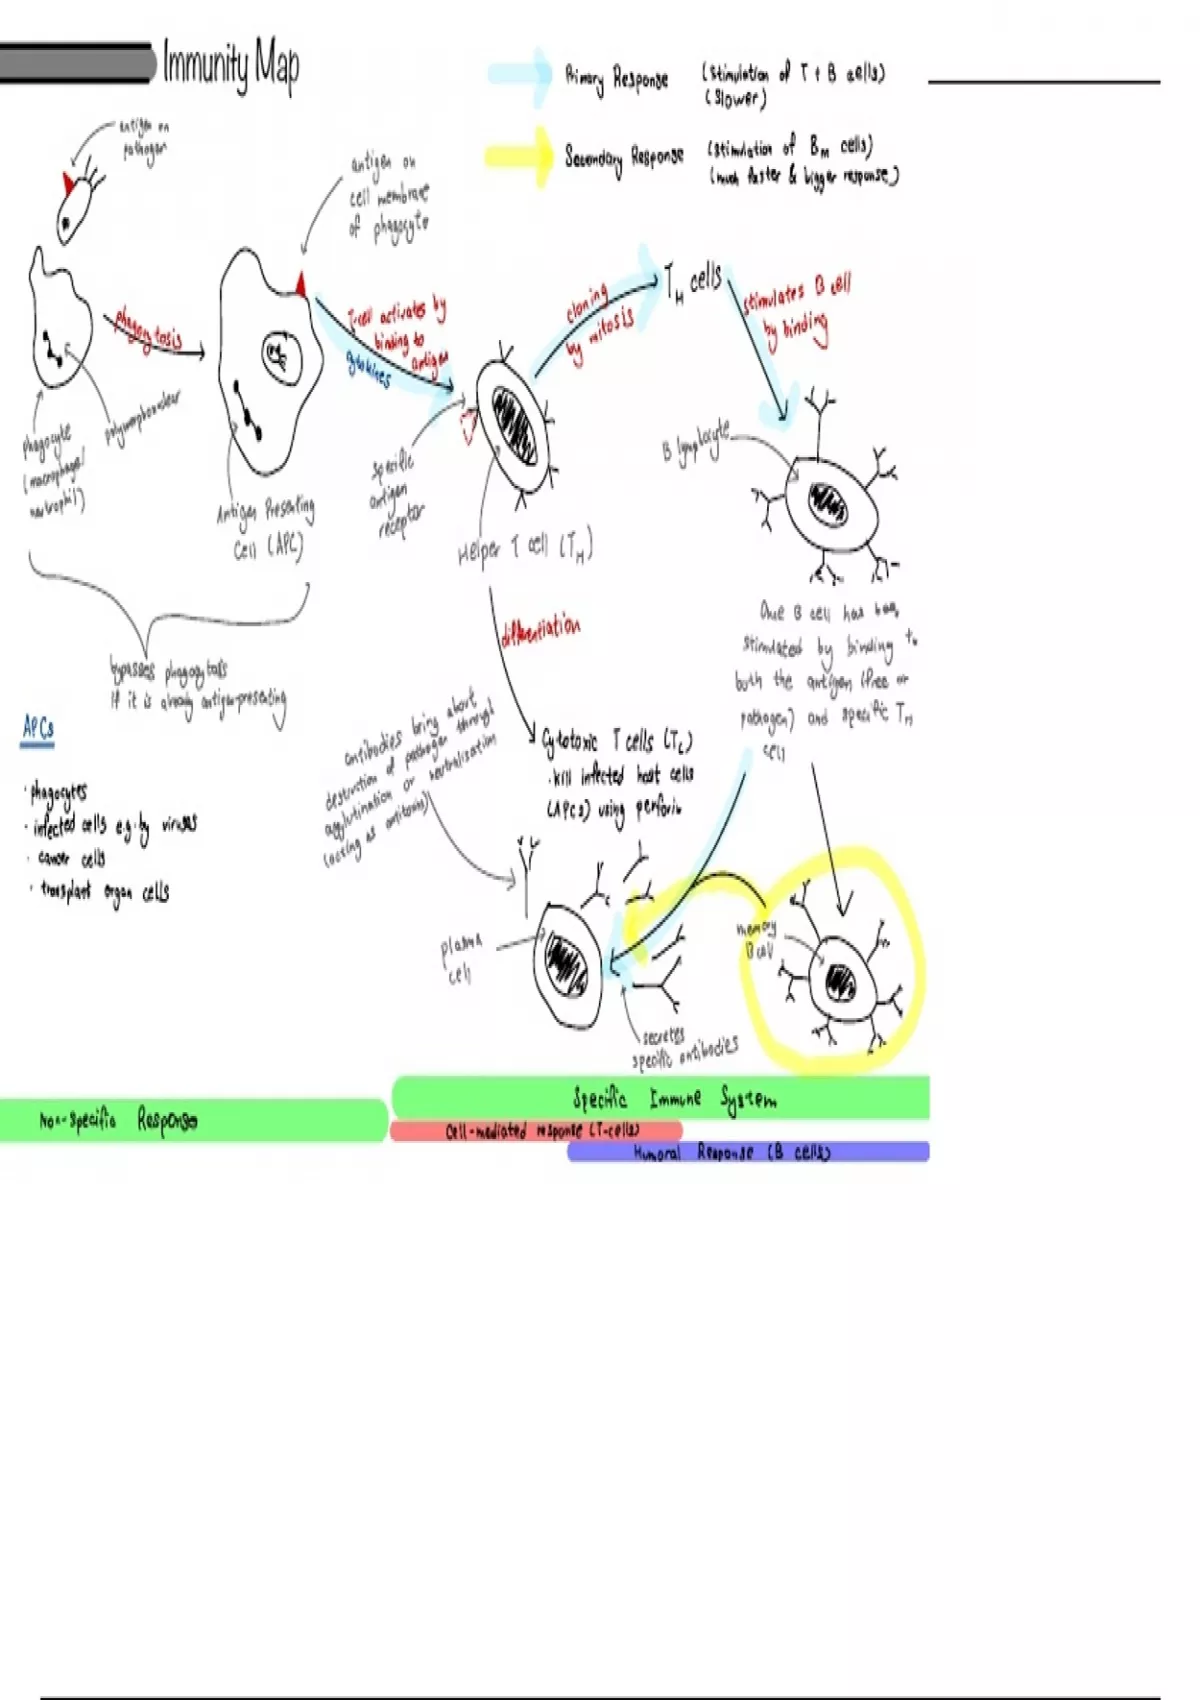 Immunity Map
Primary Response
(stimulation of T + B cells)
(slower)
Secondary Response
(stimulation of BM cells)
(much faster & bigger response)
antigen on
pathogen
antigen on
cell membrane
of phagocyte
phagocytosis
T-cell activates by
binding to
antigen
cytokines
cloning
by mitosis
TH cells
stimulates B cell
by binding
phagocyte
(macrophage/
neutrophil)
polymorphonuclear
Antigen Presenting
Cell (APC)
specific
antigen
receptor
Helper T cell (TH)
B lymphocyte
bypasses phagocytosis
if it is already antigen-presenting
differentiation
One B cell has been
stimulated by binding to
both the antigen (free or
pathogen) and specific TH
cell
APCs
· phagocytes
· infected cells e.g. by viruses
· cancer cells
· transplant organ cells
antibodies bring about
destruction of pathogen through
agglutination or neutralisation
(acting as antitoxins)
Cytotoxic T cells (TC)
· kill infected host cells
(APCs) using perforin
plasma
cell
memory
B cell
secretes
specific antibodies
Non-specific Response
Specific Immune System
Cell-mediated response (T-cells)
Humoral Response (B cells)